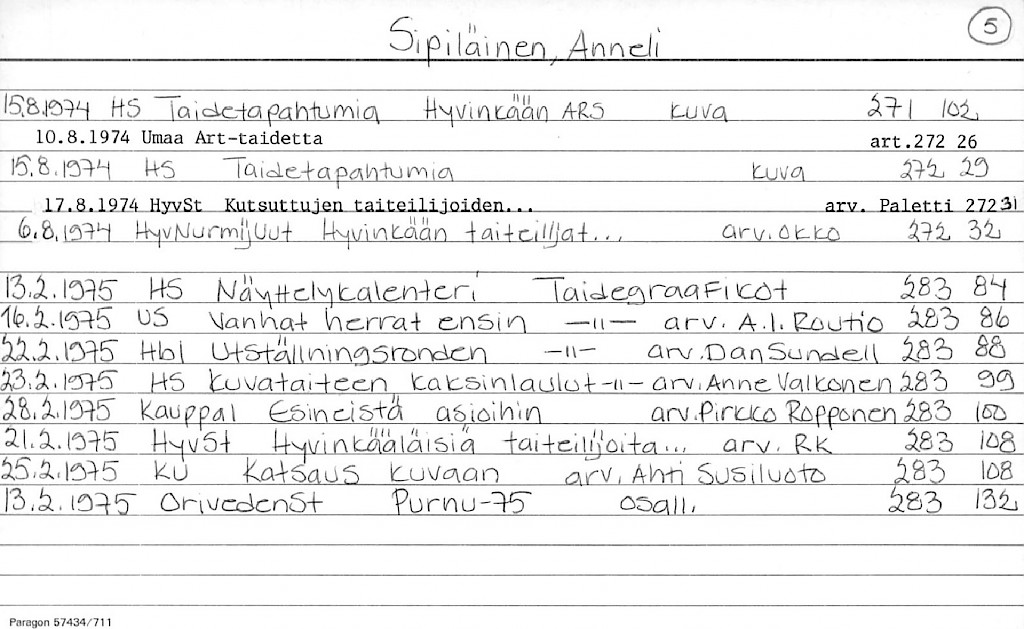 Sipiläinen, Anneli 5
15.8.1974 HS Taidetapahtumia Hyvinkään ARS kuva 271 102
10.8.1974 Umaa Art-taidetta art.272 26
15.8.1974 HS Taidetapahtumia kuva 272 29
17.8.1974 HyvSt Kutsuttujen taiteilijoiden... arv. Paletti 272 31
6.8.1974 HyvNurmijUut Hyvinkään taiteilijat... arv. Okko 272 32
13.2.1975 HS Näyttelykalenteri Taidegraafikot 283 84
16.2.1975 US Vanhat herrat ensin —"— arv. A.I. Routio 283 86
22.2.1975 Hbl Utställningsronden —"— arv. Dan Sundell 283 88
23.2.1975 HS Kuvataiteen kaksinlaulut —"— arv. Anne Valkonen 283 99
28.2.1975 Kauppal Esineistä asioihin arv. Pirkko Ropponen 283 100
21.2.1975 HyvSt Hyvinkääläisiä taiteilijoita... arv. RK 283 108
25.2.1975 KU Katsaus kuvaan arv. Ahti Susiluoto 283 108
13.2.1975 OrivedenSt Purnu-75 osall. 283 132
Paragon 57434/711